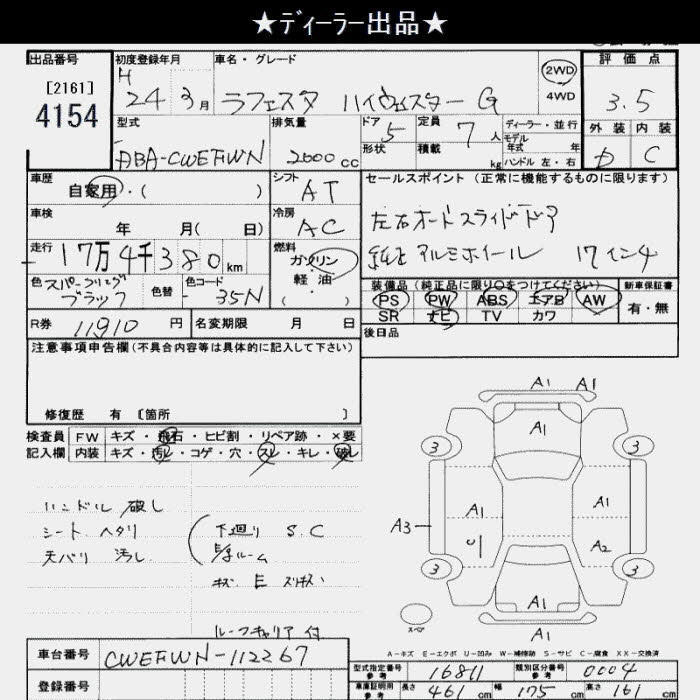 ★ディーラー出品★
出品番号 初度登録年月 車名・グレード 2WD 4WD 評価点
[2161]
4154
H 24 3月 ラフェスタ ハイウェイスター G 3.5
型式 排気量 ドア 5 定員 7人 ディーラー・並行 外装 内装
ABA-CWEFWN 2000cc 形状 積載 kg モデル年式 年 D C
ハンドル 左・右
車歴 自家用・( ) シフト AT セールスポイント (正常に機能するものに限ります)
車検 年 月( 日) 冷房 AC 左右オートスライドドア
走行 17万4千380km 燃料 ガソリン・軽油・ 純正アルミホイール 17インチ
色 ブラック 色替 色コード 35N 装備品(純正品に限り○をつけてください) 新車保証書
PS PW ABS エアB AW 有・無
SR ナビ TV カワ
R券 11,910円 名変期限 月 日 後日品
注意事項申告欄(不具合内容等は具体的に記入して下さい)
修復歴 有 〔箇所 〕
検査員 FW キズ・飛石・ヒビ割・リペア跡・×要
記入欄 内装 キズ・汚レ・コゲ・穴・スレ・キレ・破レ
ハンドル 破レ
シート ヘタリ 下廻り S.C
天バリ 汚レ ルーム
キズ E
ルーフキャリア付
A1 A1
A1
3 3
A1 A1
A3
U1 A2
3 3
A1
A1
スペア
A-キズ E-エクボ U-凹み W-補修跡 S-サビ C-腐食 XX-交換済
車台番号 CWEFWN-112267
登録番号
型式指定番号 参考 16811 類別区分番号 参考 0004
車庫証明用 参考 長さ 461cm 幅 175cm 高さ 161cm